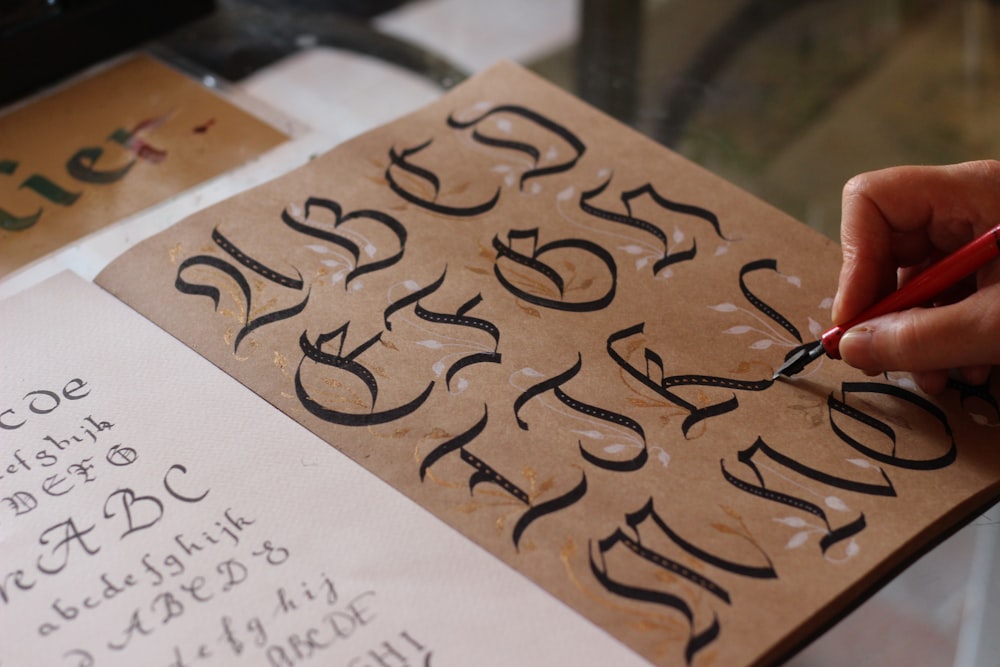 ier
A B C D
E F G H
I J K L
M N O
c d e
efghijk
D E F G
re A B C
abcdefghijk
A B C D E
efghij
ABCDE
GHI